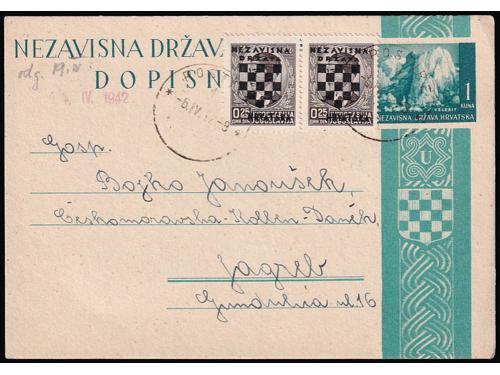 NEZAVISNA DRŽAVA
DOPISN
odg. 19. IV.
IV. 1942
NEZAVISNA
DRŽAVA
HRVATSKA
0.25
JUGOSLAVIJA
NEZAVISNA
DRŽAVA
HRVATSKA
0.25
JUGOSLAVIJA
VELEBIT
1
KUNA
NEZAVISNA DRŽAVA HRVATSKA
U
Gosp.
Božko Janoušek,
Českomoravska-Kolben-Daněk,
Zagreb
Gundulića ul. 16